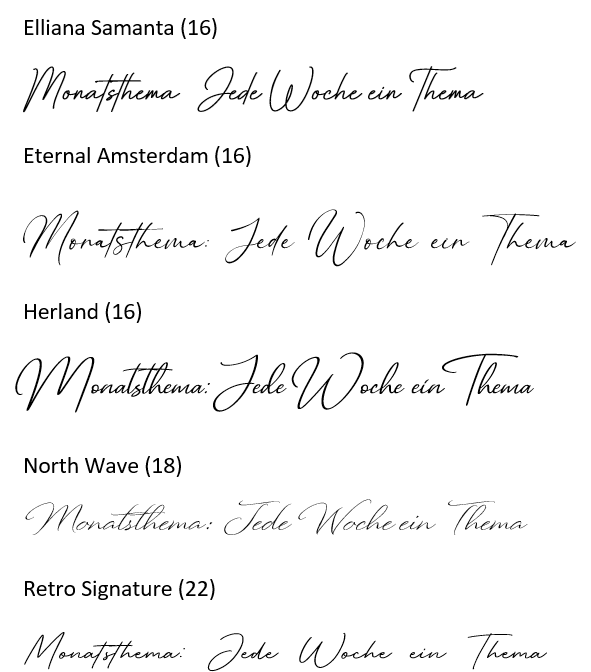 Elliana Samanta (16)
Monatsthema Jede Woche ein Thema
Eternal Amsterdam (16)
Monatsthema: Jede Woche ein Thema
Herland (16)
Monatsthema: Jede Woche ein Thema
North Wave (18)
Monatsthema: Jede Woche ein Thema
Retro Signature (22)
Monatsthema: Jede Woche ein Thema